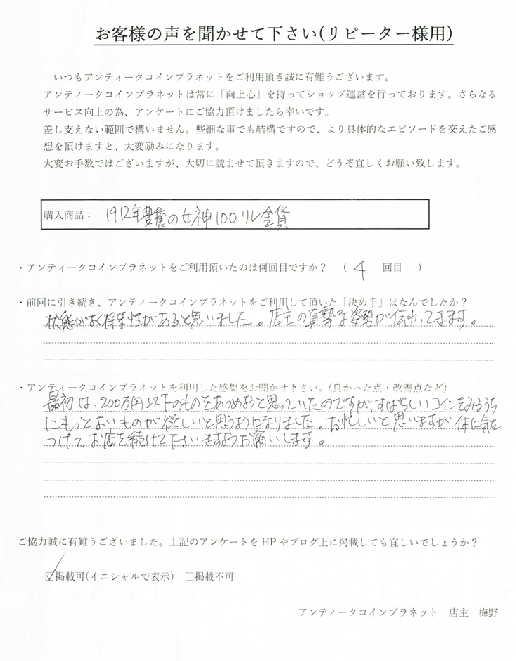 お客様の声を聞かせて下さい(リピーター様用)
いつもアンティークコインプラネットをご利用頂き誠に有難うございます。
アンティークコインプラネットは常に「向上心」を持ってショップ運営を行っております。さらなる
サービス向上の為、アンケートにご協力頂けましたら幸いです。
差し支えない範囲で構いません。些細な事でも結構ですので、より具体的なエピソードを交えたご感
想を頂けますと、大変励みになります。
大変お手数ではございますが、大切に読ませて頂きますので、どうぞ宜しくお願い致します。
購入商品: 1912年豊穣の女神100リレ金貨
・アンティークコインプラネットをご利用頂いたのは何回目ですか? ( 4 回目 )
・前回に引き続き、アンティークコインプラネットをご利用して頂いた「決め手」はなんでしたか?
状態がよく将来性があると思いました。店主の真摯な姿勢が伝わってきます。
・アンティークコインプラネットを利用した感想をお聞かせ下さい。(良かった点・改善点など)
最初は、200万円以下のものをあつめようと思っていたのですが、すばらしいコインをみるうち
にもっとよいものが欲しいと思うようになりました。お忙しいと思いますが体に気を
つけてお店を続けて下さいますようお願いします。
ご協力誠に有難うございました。上記のアンケートをHPやブログ上に掲載しても宜しいでしょうか?
☑掲載可(イニシャルで表示) □掲載不可
アンティークコインプラネット 店主 梅野